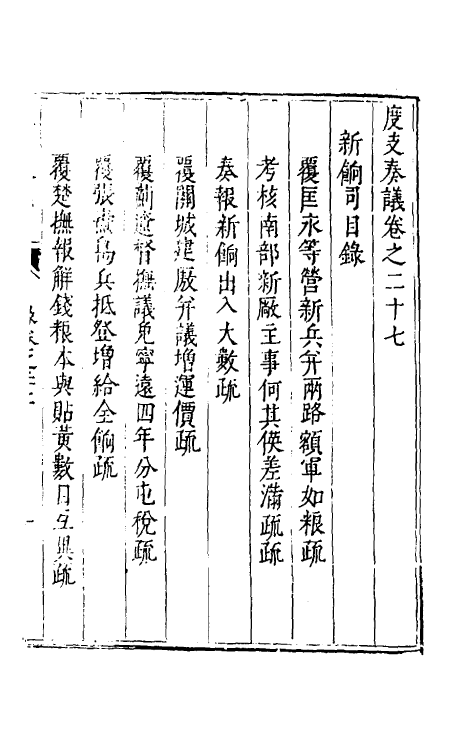 度支奏議卷之二十七
新餉司目錄
覆匡永等營新兵弁兩路額軍加粮疏
考核南部新廠主事何其俠差滿疏疏
奏報新餉出入大數疏
覆關城建廒弁議增運價疏
覆薊遼督撫議免寧遠四年分屯稅疏
覆張島兵抵登增給全餉疏
覆楚撫報解錢粮本與貼黃數目互異疏